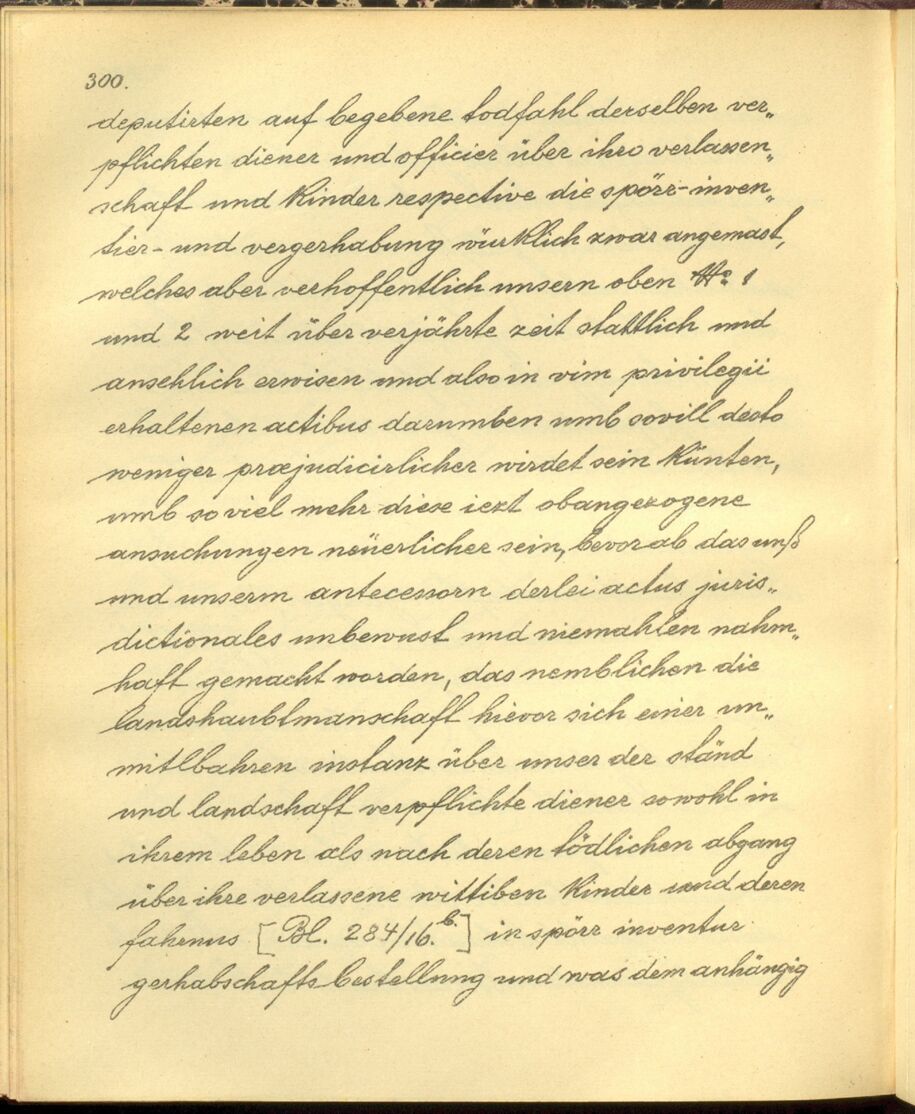 300.
deputirten auf begebene todfahl derselben ver„
pflichten diener und officier über ihro verlassen„
schaft und Kinder respective die spörr-inven„
tier- und vergerhabung würklich zwar angemast,
welches aber verhoffentlich unsern oben No: 1
und 2 weit über verjährte zeit stattlich und
ansehlich erwisen und also in vim privilegii
erhaltenen actibus darumben umb sovill desto
weniger præjudicirlicher wirdet sein Künten,
umb so viel mehr diese iezt obangezogene
ansuchungen neüerlicher sein, bevorab das unß
und unserm antecessorn derlei actus juris„
dictionales unbewust und niemahlen nahm„
haft gemacht worden, das nemblichen die
landshaubtmanschaft hievor sich einer un„
mitlbahren instanz über unser der ständ
und landschaft verpflichte diener sowohl in
ihrem leben als nach deren tödlichen abgang
über ihre verlassene wittiben Kinder und deren
fahrnus [Bl. 284/16.b.] in spörr inventur
gerhabschafts bestellung und was dem anhängig